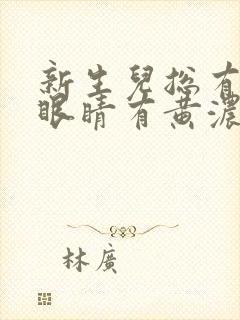 新生兒總有
眼睛有黃濃
林廣